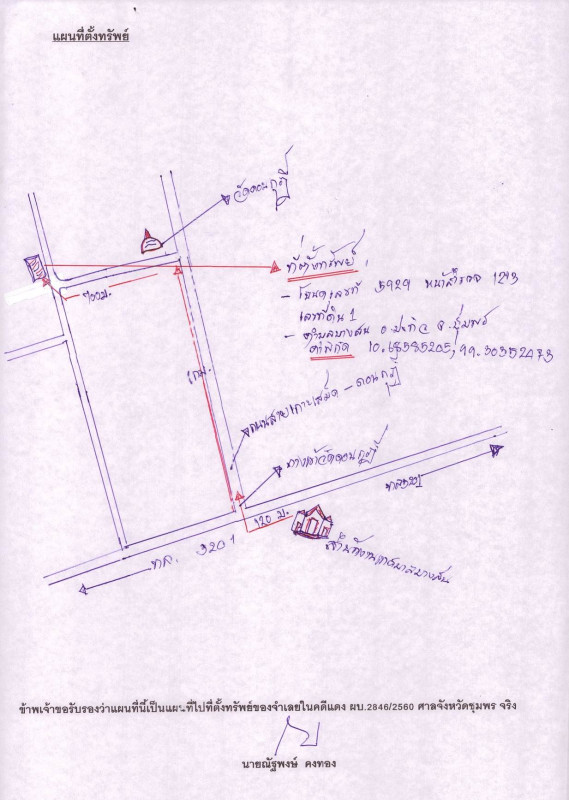 แผนที่ตั้งทรัพย์
วัดดอนกุฎี
ที่ตั้งทรัพย์
- โฉนดเลขที่ 5929 หน้าสำรวจ 1293
เลขที่ดิน 1
- ตำบลบางสน อ.ปะทิว จ.ชุมพร
ค่าพิกัด 10.68585205, 99.30352073
700ม.
1กม.
ถนนสายเกาะเสม็ด - ดอนกุฎี
ทางเข้าวัดดอนกุฎี
120 ม.
ทล. 3201
สำนักงานเทศบาลบางสน
ข้าพเจ้าขอรับรองว่าแผนที่นี้เป็นแผนที่ไปที่ตั้งทรัพย์ของจำเลยในคดีแดง ผบ.2846/2560 ศาลจังหวัดชุมพร จริง
นายณัฐพงษ์ คงทอง